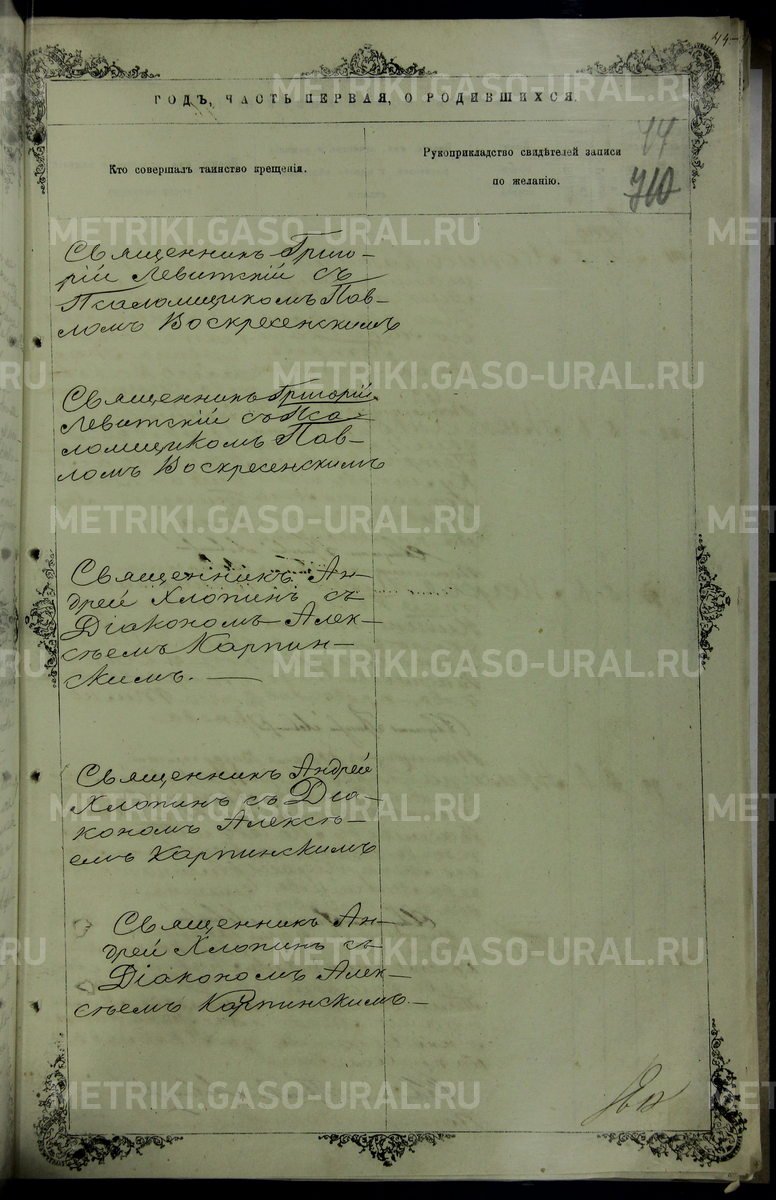 44
ГОДЪ, ЧАСТЬ ПЕРВАЯ, О РОДИВШИХСЯ.
44
710
Кто совершалъ таинство крещенія.
Рукоприкладство свидѣтелей записи
по желанію.
Священникъ Григо-
рій Левитскій съ
Псаломщикомъ Пав-
ломъ Воскресенскимъ
Священникъ Григорій
Левитскій съ Пса-
ломщикомъ Пав-
ломъ Воскресенскимъ
Священникъ Ан-
дрей Хлопинъ съ
Діакономъ Алек-
сѣемъ Карпин-
скимъ.
Священникъ Андрей
Хлопинъ съ Діа-
кономъ Алексѣ-
емъ Карпинскимъ
Священникъ Ан-
дрей Хлопинъ съ
Діакономъ Алек-
сѣемъ Карпинскимъ.
METRIKI.GASO-URAL.RU